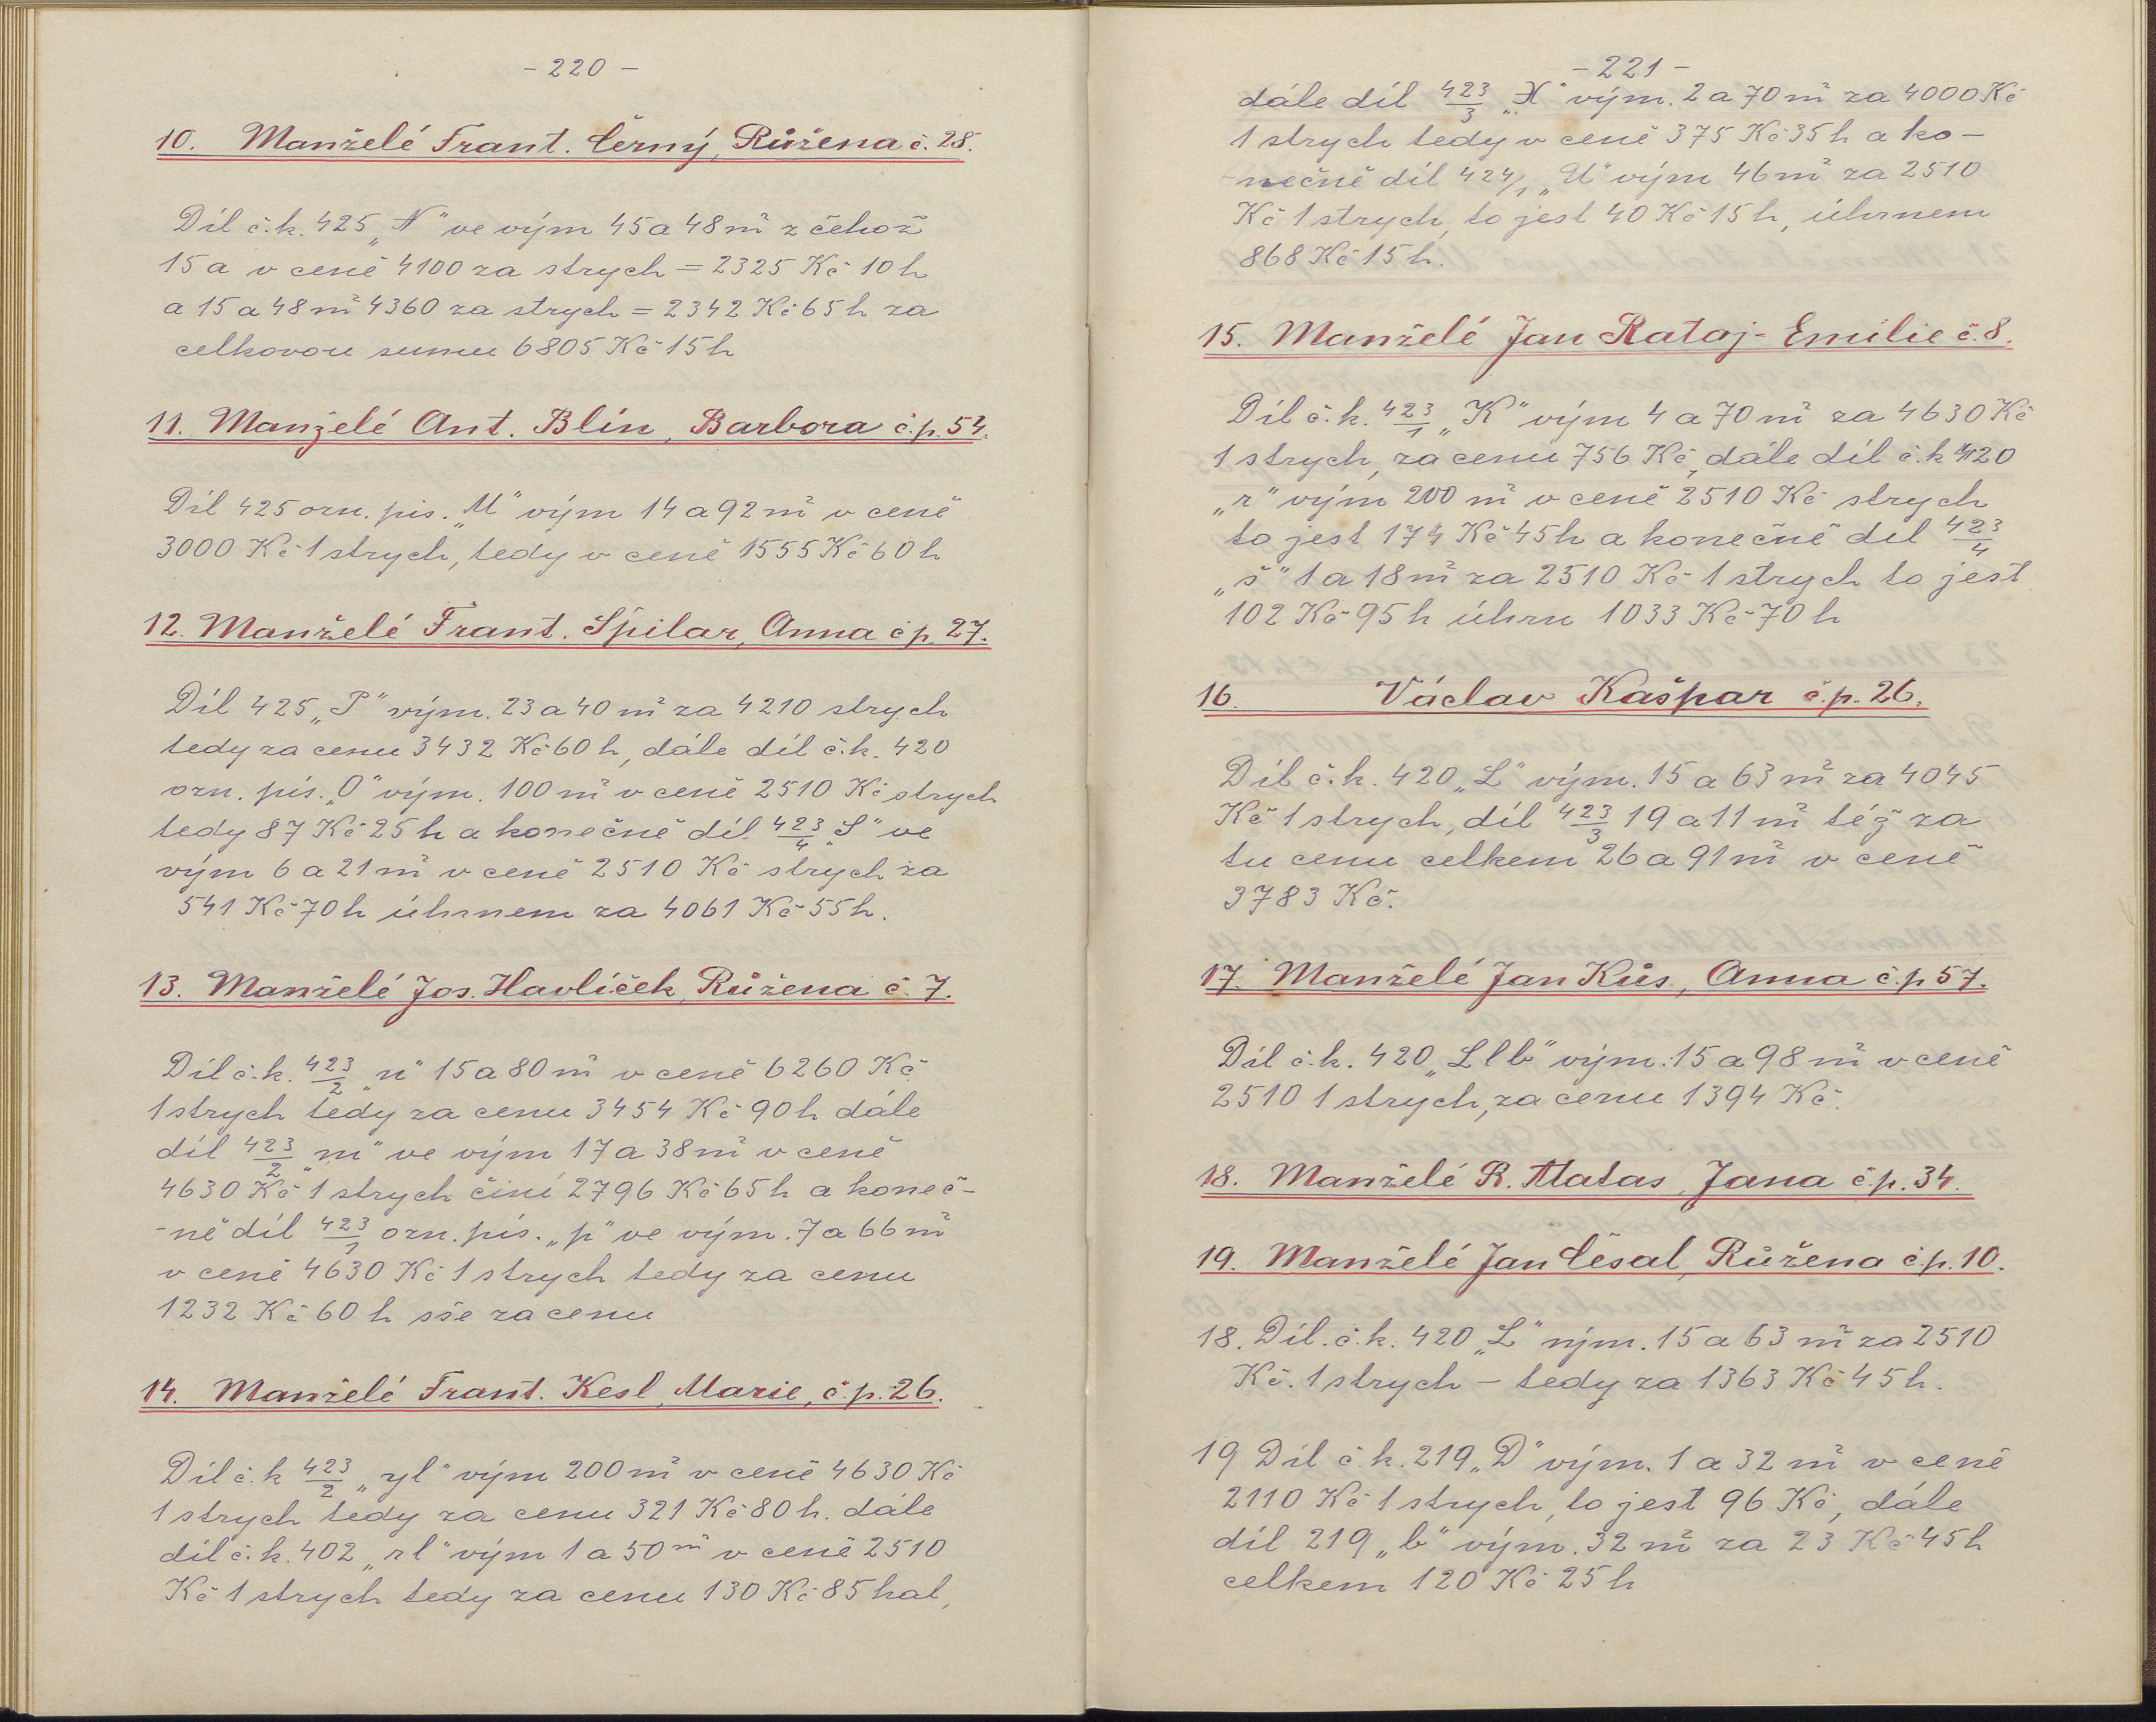 - 220 -
10. Manželé Frant. Černý, Růžena č. 28.
Díl č. k. 425 „N" ve vým 45 a 48 m² z čehož
15 a v ceně 4100 za strych = 2325 Kč 10 h
a 15 a 48 m² 4360 za strych = 2342 Kč 65 h za
celkovou sumu 6805 Kč 15 h
11. Manželé Ant. Blín, Barbora č. p. 54.
Díl 425 ozn. pís. „M" vým 14 a 92 m² v ceně
3000 Kč 1 strych, tedy v ceně 1555 Kč 60 h
12. Manželé Frant. Špilar, Anna č p. 27.
Díl 425 „P" vým. 23 a 40 m² za 4210 strych
tedy za cenu 3432 Kč 60 h, dále díl č. k. 420
ozn. pís. „O" vým. 100 m² v ceně 2510 Kč strych
tedy 87 Kč 25 h a konečně díl 423/4 „S" ve
vým 6 a 21 m² v ceně 2510 Kč strych za
541 Kč 70 h úhrnem za 4061 Kč 55 h.
13. Manželé Jos. Havlíček, Růžena č. 7.
Díl č. k. 423/2 „n" 15 a 80 m² v ceně 6260 Kč
1 strych tedy za cenu 3454 Kč 90 h dále
díl 423/2 „m" ve vým 17 a 38 m² v ceně
4630 Kč 1 strych činí 2796 Kč 65 h a koneč-
-ně díl 423/1 ozn. pís. „p" ve vým. 7 a 66 m²
v ceně 4630 Kč 1 strych tedy za cenu
1232 Kč 60 h vše za cenu
14. Manželé Frant. Kesl, Marie, č. p. 26.
Díl č. k 423/2 „yl" vým 200 m² v ceně 4630 Kč
1 strych tedy za cenu 321 Kč 80 h. dále
díl č. k. 402 „rl" vým 1 a 50 m² v ceně 2510
Kč 1 strych tedy za cenu 130 Kč 85 hal,
- 221 -
dále díl 423/3 „X" vým. 2 a 70 m² za 4000 Kč
1 strych tedy v ceně 375 Kč 35 h a ko-
-nečně díl 424/1 „U" vým 46 m² za 2510
Kč 1 strych, to jest 40 Kč 15 h, úhrnem
868 Kč 15 h.
15. Manželé Jan Rataj - Emilie č. 8.
Díl č. k. 423/1 „K" vým 4 a 70 m² za 4630 Kč
1 strych, za cenu 756 Kč, dále díl č. k 420
„r" vým 200 m² v ceně 2510 Kč strych
to jest 174 Kč 45 h a konečně díl 423/4
„š" 1 a 18 m² za 2510 Kč 1 strych to jest
102 Kč 95 h úhrn 1033 Kč 70 h
16. Václav Kašpar č. p. 26.
Díl č. k. 420 „L" vým. 15 a 63 m² za 4045
Kč 1 strych, díl 423/3 19 a 11 m² též za
tu cenu celkem 26 a 91 m² v ceně
3783 Kč.
17. Manželé Jan Kůs, Anna č. p 57.
Díl č. k. 420 „Llb" vým. 15 a 98 m² v ceně
2510 1 strych, za cenu 1394 Kč.
18. Manželé R. Matas, Jana č. p. 34.
19. Manželé Jan Césal, Růžena č. p. 10.
18. Díl. č. k. 420 „L" vým. 15 a 63 m² za 2510
Kč. 1 strych - tedy za 1363 Kč 45 h.
19 Díl č. k. 219 „D" vým. 1 a 32 m² v ceně
2110 Kč 1 strych, to jest 96 Kč, dále
díl 219 „b" vým. 32 m² za 23 Kč 45 h
celkem 120 Kč 25 h